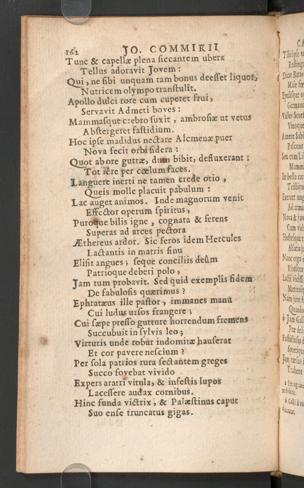 162 JO. COMMIRII
Tunc & capellæ plena siccantem ubera
Tellus adoravit Jovem:
Qui, ne sibi unquam tam bonus deesset liquor,
Nutricem olympo transtulit.
Apollo dulci rore cum cuperet frui,
Servavit Admeti boves:
Mammasque crebro suxit, ambrosiæ ut vetus
Abstergeret fastidium.
Hoc ipse madidus nectare Alcmenæ puer
Nova fecit orbi sidera:
Quot abore guttæ, dum bibit, defluxerant:
Tot ière per cœlum faces.
Languere inerti ne tamen crede otio,
Queis molle placuit pabulum:
Lac auget animos. Inde magnorum venit
Effector operum spiritus,
Puroque bilis igne, cognata & ferens
Superas ad arces pectora
Æthereus ardor. Sic feros idem Hercules
Lactantis in matris sinu
Elisit angues; seque conciliis deûm
Patrioque deberi polo,
Jam tum probavit. Sed quid exemplis fidem
De fabulosis quærimus?
Ephratæus ille pastor, immanes manu
Cui ludus ursos frangere;
Cui sæpe presso gutture horrendum fremens
Succubuit in sylvis leo;
Virtutis unde robur indomitæ hauserat
Et cor pavere nescium?
Per sola patrios rura sectantem greges
Succo fovebat vivido
Expers aratri vitula, & infestis lupos
Lacessere audax cornibus.
Hinc funda victrix, & Palæstinus caput
Suo ense truncatus gigas.